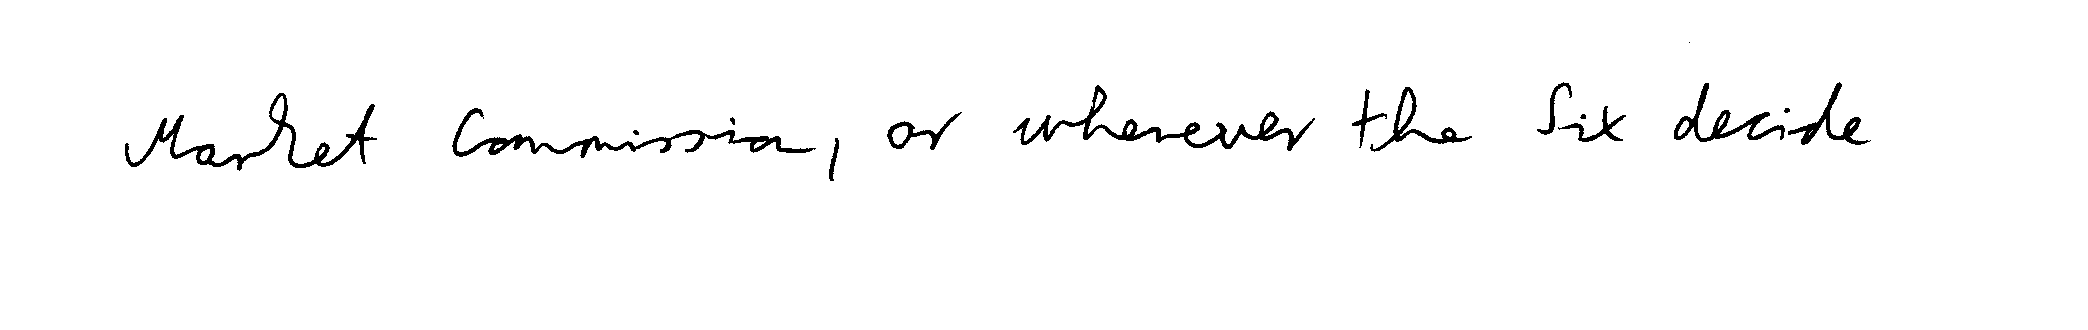 Market Commission, or wherever the Six decide